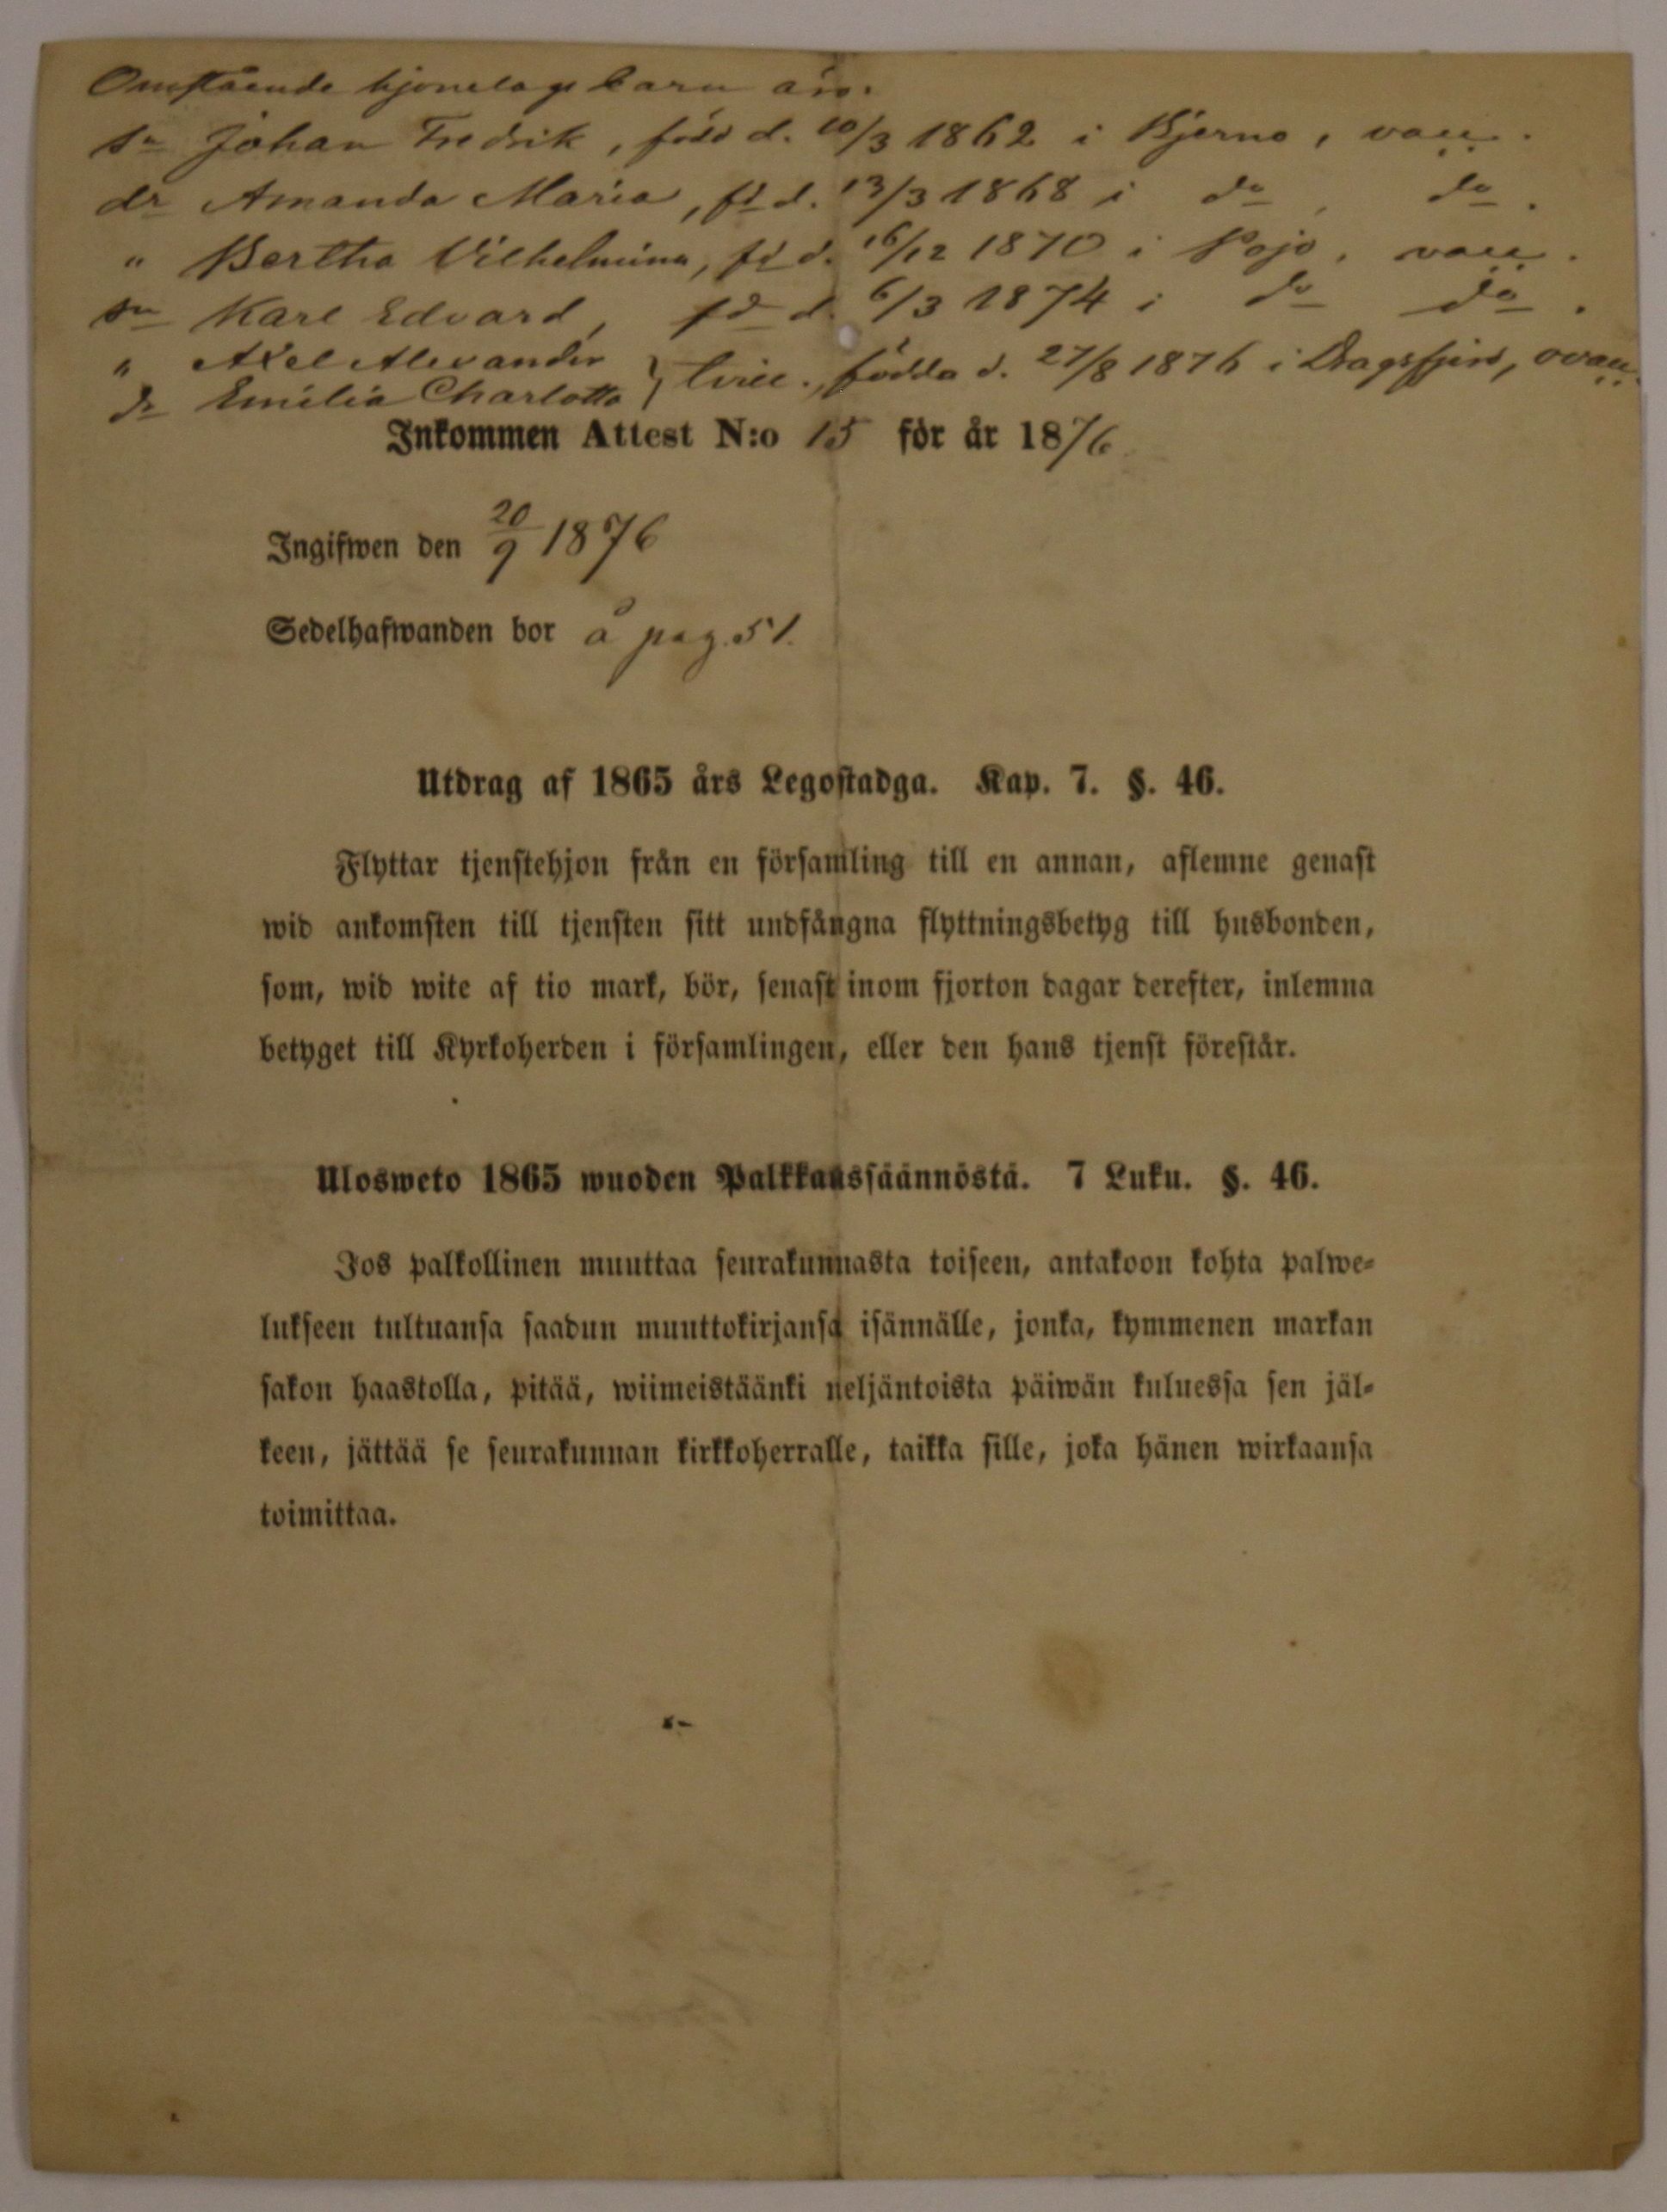 Omstående hjonelags barn äro:
sn Johan Fredrik, född d. 10/3 1862 i Bjerno, vacc.
dr Amanda Maria, fd d. 13/3 1868 i do, do.
" Bertha Vilhelmina, fd d. 16/12 1870 i Pojo, vacc.
sn Karl Edvard, fd d. 6/3 1874 i do do.
" Axel Alexander
dr Emilia Charlotta } tvill., födda d. 27/8 1876 i Dragsfjerd, ovacc.
Inkommen Attest N:o 15 för år 1876
Ingifwen den 20/9 1876
Sedelhafwanden bor å pag. 51.
Utdrag af 1865 års Legostadga. Kap. 7. §. 46.
Flyttar tjenstehjon från en församling till en annan, aflemne genast
wid ankomsten till tjensten sitt undfångna flyttningsbetyg till husbonden,
som, wid wite af tio mark, bör, senast inom fjorton dagar derefter, inlemna
betyget till Kyrkoherden i församlingen, eller den hans tjenst förestår.
Ulosweto 1865 wuoden Palkkaussäännöstä. 7 Luku. §. 46.
Jos palkollinen muuttaa seurakunnasta toiseen, antakoon kohta palwe-
lukseen tultuansa saadun muuttokirjansa isännälle, jonka, kymmenen markan
sakon haastolla, pitää, wiimeistäänki neljäntoista päiwän kuluessa sen jäl-
keen, jättää se seurakunnan kirkkoherralle, taikka sille, joka hänen wirkaansa
toimittaa.